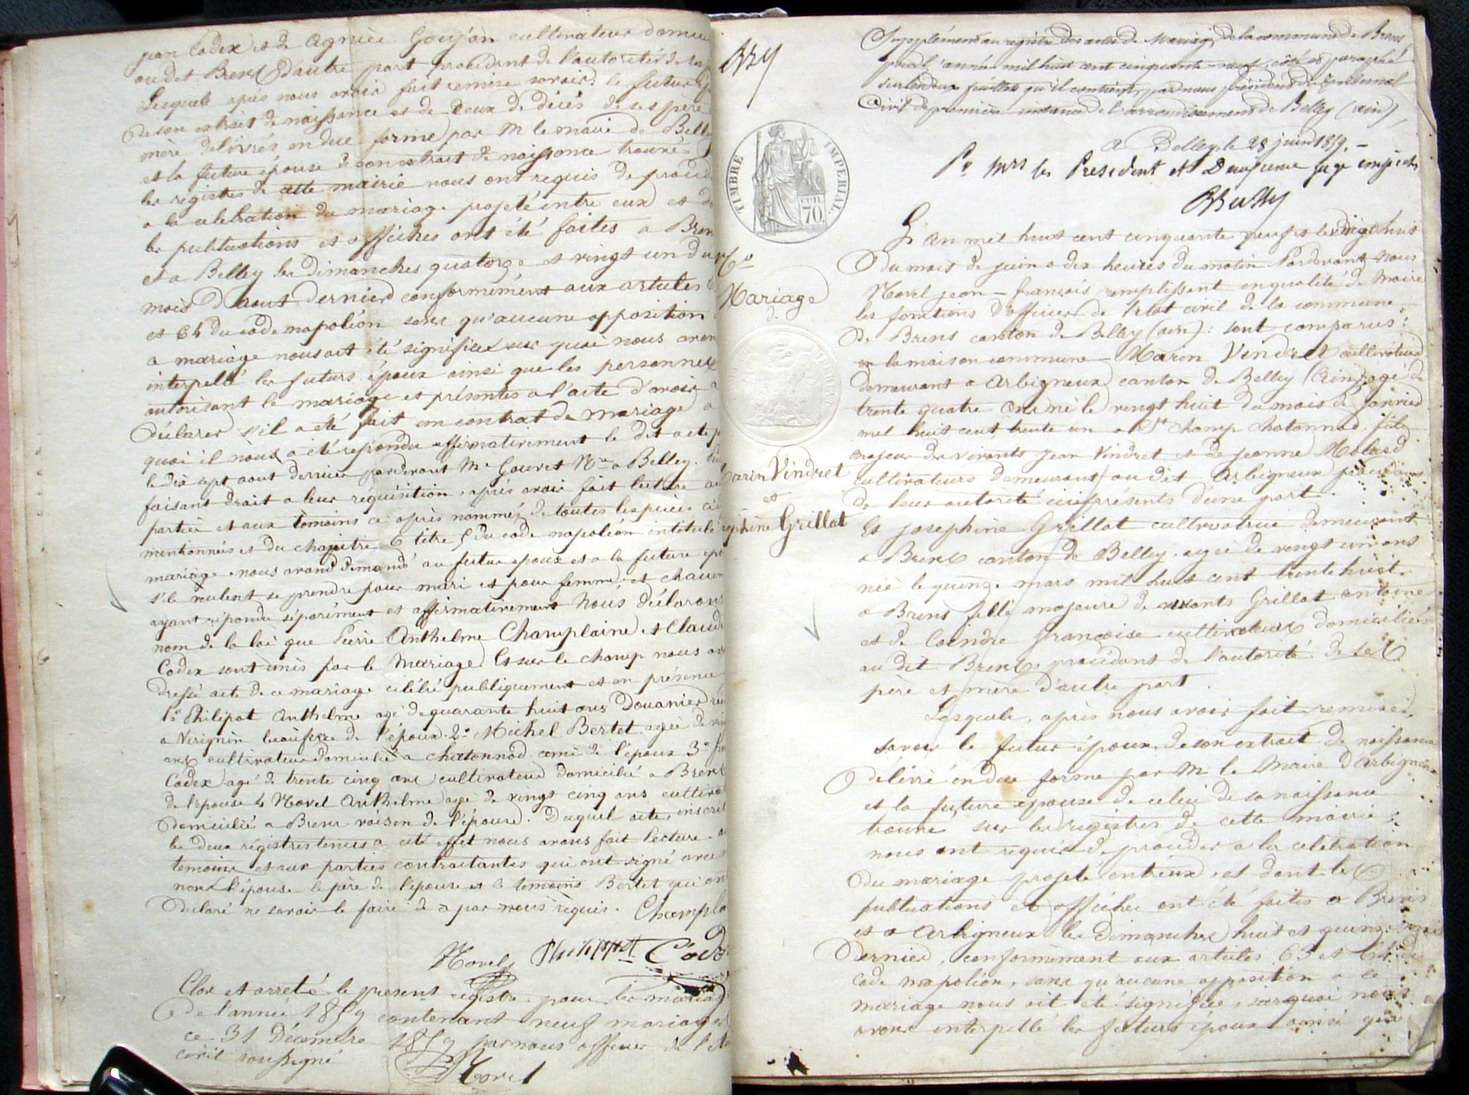 jean Codex et de Agnès Goujon cultivateurs
au dit Brens d'autre part procédant de l'autorité de
Lesquels après nous avoir fait remise savoir le futur
de son extrait de naissance et de deux de décès de ses père
mère délivrés en due forme par Mr le maire de Belley
et la future épouse de son extrait de naissance trouvé
les registres de cette mairie nous ont requis de procéder
a la celebration du mariage projeté entre eux et
les publications et affiches ont été faites a Brens
et a Belley les dimanches quatorze et vingt un du
mois d'aout dernier conformément aux articles
et 64 du code napoléon sans qu'aucune opposition
a mariage nous ait été signifiée sur quoi nous avons
interpellé les futurs époux ainsi que les personnes
autorisant le mariage et présentes a l'acte d'avoir a
déclarer s'il a été fait un contrat de mariage a
quoi il nous a été répondu affirmativement le dit acte
le dix sept aout dernier pardevant Me Gouvet Nre a Belley.
faisant droit a leur réquisition après avoir fait lecture aux
parties et aux témoins ci après nommés de toutes les pièces ci
mentionnées et du chapitre 6 titre 5 du code napoléon intitulé
mariage nous avons demandé au futur epoux et a la future
s'ils veulent se prendre pour mari et pour femme et chacun
ayant répondu séparément et affirmativement Nous déclarons
nom de la loi que Pierre Anthelme Champlaine et Claudi
Codex sont unis par le Mariage Et sur le champ nous avons
dressé acte de ce mariage célébré publiquement et en présence
1° Philipot Anthelme agé de quarante huit ans Douanier
a Virignin beaufrère de l'époux 2° Michel Bertet agé de
ans cultivateur domicilié a chatonnod ami de l'époux 3°
Codex agé de trente cinq ans cultivateur domicilié a Brens
de l'épouse 4 Morel Anthelme agé de vingt cinq ans
domicilié a Brens voisin de l'épouse. Duquel acte inscrit
les deux registres tenus a cet effet nous avons fait lecture aux
témoins et aux parties contractantes qui ont signé avec
nous l'épouse le père de l'épouse et le témoins Bertet qui ont
déclaré ne savoir le faire de ce par nous requis. Champla
Morel Philippot Codex
Clos et arreté le present registre pour les mariages
de l'année 1859 contenant neuf mariages
ce 31 Décembre 1859 par nous officier de l'état
civil soussigné
Morel
Supplément au registre des actes de Mariage de la commune de Brens
pour l'année mil huit cent cinquante neuf, côté et paraphé
sur les deux feuillets qu'il contient, par nous président du tribunal
Civil de première instance de l'arrondissement de Belley (ain)
a Belley le 28 juin 1859.
Pr Mrs les President et Deuxieme juge empechés
TIMBRE IMPERIAL
70
6e
Mariage
Marin Vindret
et
Joséphine Grillot
L'an mil huit cent cinquante neuf et le dix huit
du mois de juin a dix heures du matin Pardevant nous
Morel jean-françois remplissant en qualité de Maire
les fonctions d'officier de l'etat civil de la commune
de Brens canton de Belley (ain): sont comparus:
en la maison commune Marin Vindret cultivateur
demeurant a Arbignieux canton de Belley (Ain) agé de
trente quatre ans né le vingt huit du mois de janvier
mil huit cent trente un a St Champ chatonnod, fils
majeur des vivants jean Vindret et de jeanne Molard
cultivateurs demeurant au dit Arbignieux procédant
de leur autorité ci présents d'une part
Et josephine Grillot cultivatrice demeurant
a Brens canton de Belley agée de vingt un ans
née le quinze mars mil huit cent trente huit
a Brens fille majeure de vivants Grillot antoine
et de Coindre Françoise cultivateurs domiciliés
au dit Brens procédant de l'autorité de ses
père et mère d'autre part.
Lesquels, après nous avoir fait remise
savoir le futur époux de son extrait de naissance
délivré en due forme par Mr le Maire d'Arbignieux
et la future épouse de celui de sa naissance
trouvé sur les registres de cette mairie
nous ont requis de procéder a la celebration
du mariage projeté entreux et dont les
publications et affiches ont été faites a Brens
et a Arbignieux les dimanches huit et quinze
dernier, conformément aux articles 63 et 64 du
code napoléon, sans qu'aucune opposition a ce
mariage nous ait été signifiée, sur quoi nous
avons interpellé les futurs époux ainsi que